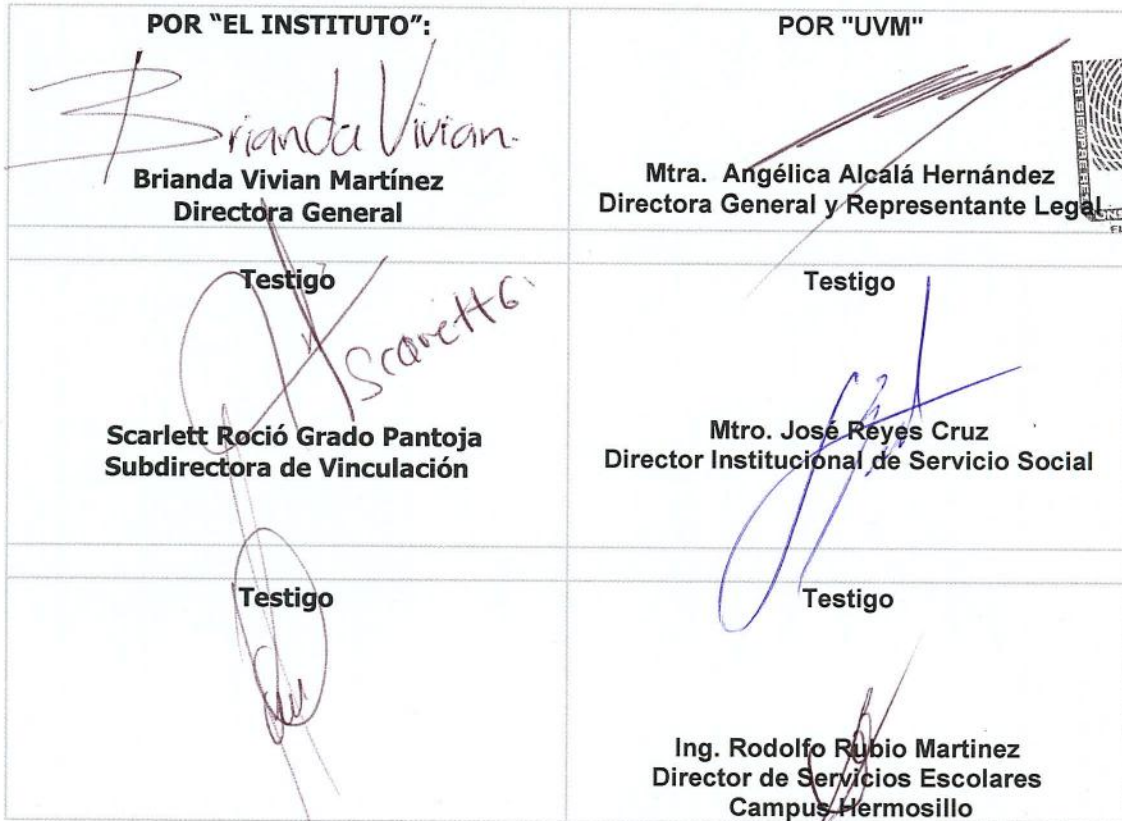 POR “EL INSTITUTO”:
Brianda Vivian.
Brianda Vivian Martínez
Directora General
POR "UVM"
Mtra. Angélica Alcalá Hernández
Directora General y Representante Legal
POR SIEMPRE RE
Testigo
Scarlett G.
Scarlett Roció Grado Pantoja
Subdirectora de Vinculación
Testigo
Mtro. José Reyes Cruz
Director Institucional de Servicio Social
Testigo
Testigo
Ing. Rodolfo Rubio Martinez
Director de Servicios Escolares
Campus Hermosillo